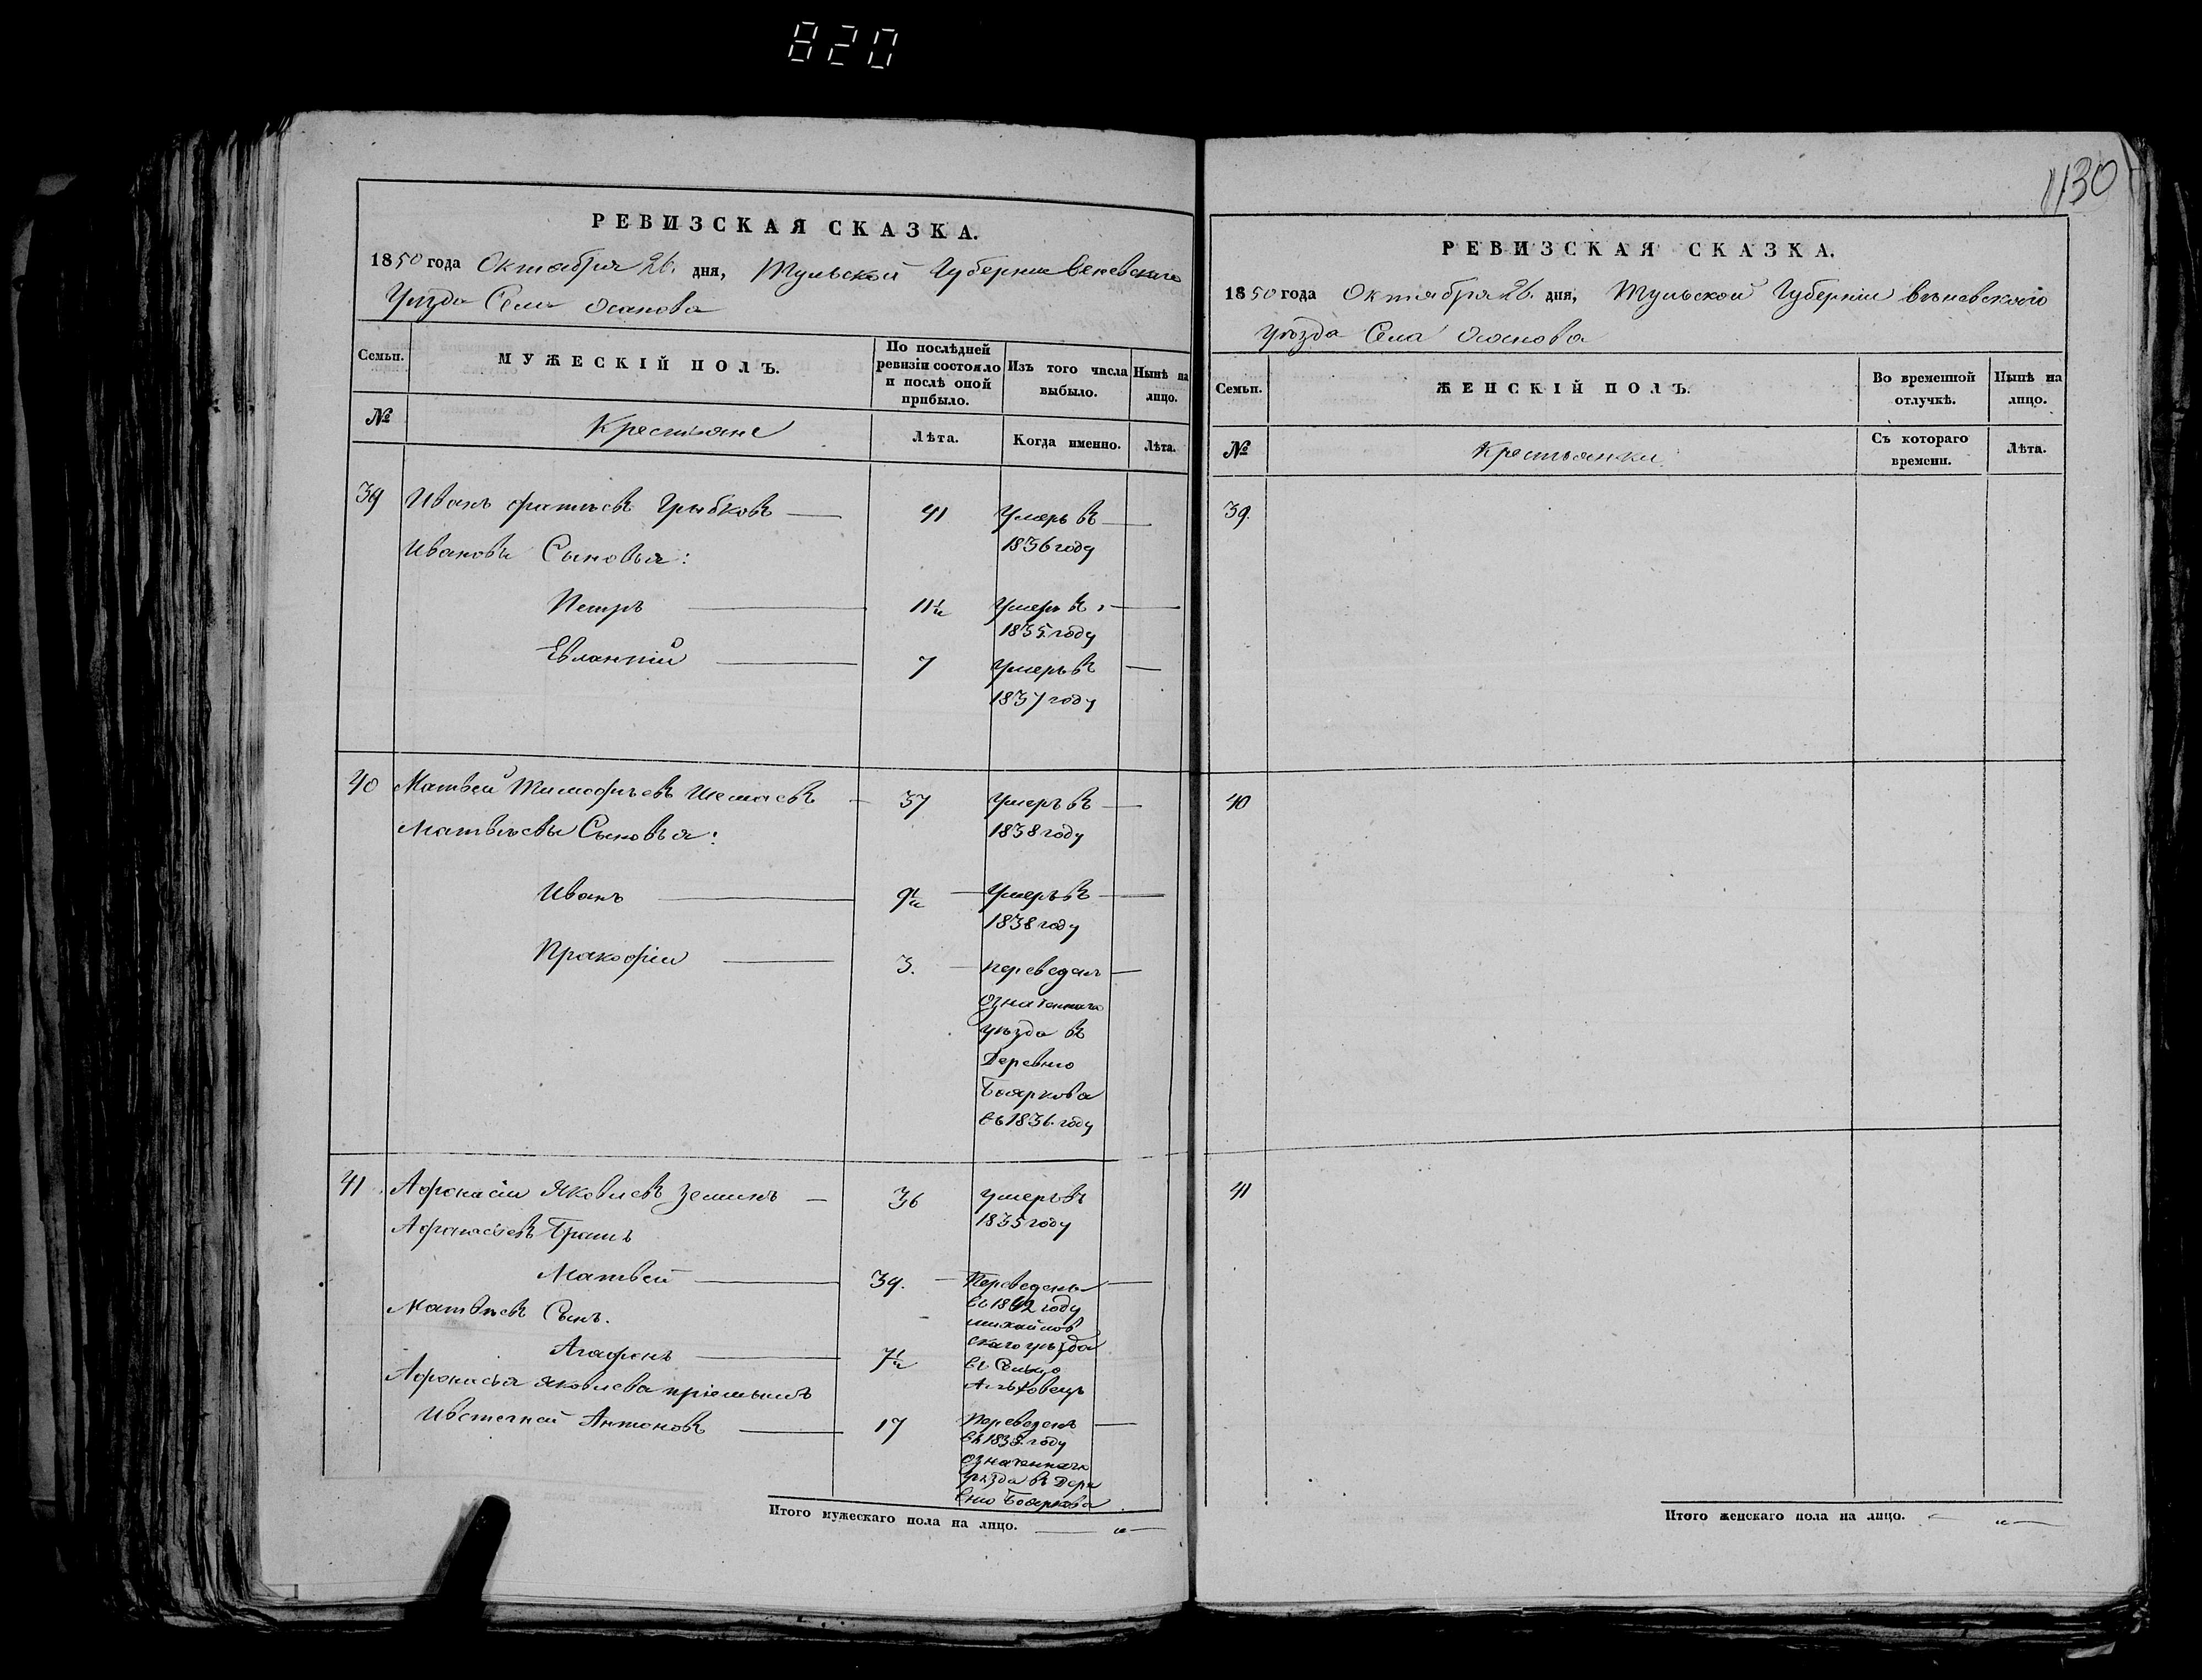 820
1130
РЕВИЗСКАЯ СКАЗКА.
1850 года Октября 26. дня, Тульской Губернии Веневскаго
Уѣзда Села Осанова
Семьи. МУЖЕСКІЙ ПОЛЪ. По послѣдней ревизіи состояло и послѣ оной прибыло. Изъ того числа выбыло. Нынѣ на лицо.
№ Крестьяне Лѣта. Когда именно. Лѣта.
39 Иванъ Фатѣевъ Грибковъ — 41 Умеръ въ —
1836 году
Ивановы Сыновья:
Петръ — 11½ Умеръ въ —
1835 году
Евлампій — 7 Умеръ въ —
1837 году
40 Матвей Тимофѣевъ Шемаевъ — 37 Умеръ въ —
1838 году
Матвѣевы Сыновья:
Иванъ — 9½ — Умеръ въ —
1838 году
Прокофій — 3. — переведен —
означеннаго
уѣзда въ
Деревню
Бояркова
въ 1836. году
41 Афонасіи Яковлевъ Земинъ — 36 умеръ въ
1835 году
Афонасіевъ Братъ
Матвей — 39. — Переведены —
въ 1842 году
михайлов
скаго уѣзда
въ Сельцо
Матвѣевъ Сынъ.
Агафонъ — 7½
Афонасья Яковлева пріемышъ
Антоновъ — 17 Переведенъ —
въ 1838. году
означеннаго
Уѣзда въ Дере
вню Бояркова
Итого мужескаго пола на лицо. — „ —
РЕВИЗСКАЯ СКАЗКА.
1850 года Октября 26. дня, Тульской Губерніи Вѣневского
уѣзда Села Осанова
Семьи. ЖЕНСКІЙ ПОЛЪ. Во временной отлучкѣ. Нынѣ на лицо.
№ Крестьянки Съ котораго времени. Лѣта.
39.
40
41
Итого женскаго пола на лицо. — „ —